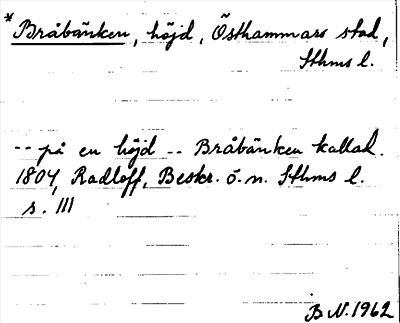 *Bråbänken, höjd, Östhammars stad,
Sthms l.
-- på en höjd -- Bråbänken kallad.
1804, Radloff, Beskr. ö. n. Sthms l.
s. 111
B N. 1962